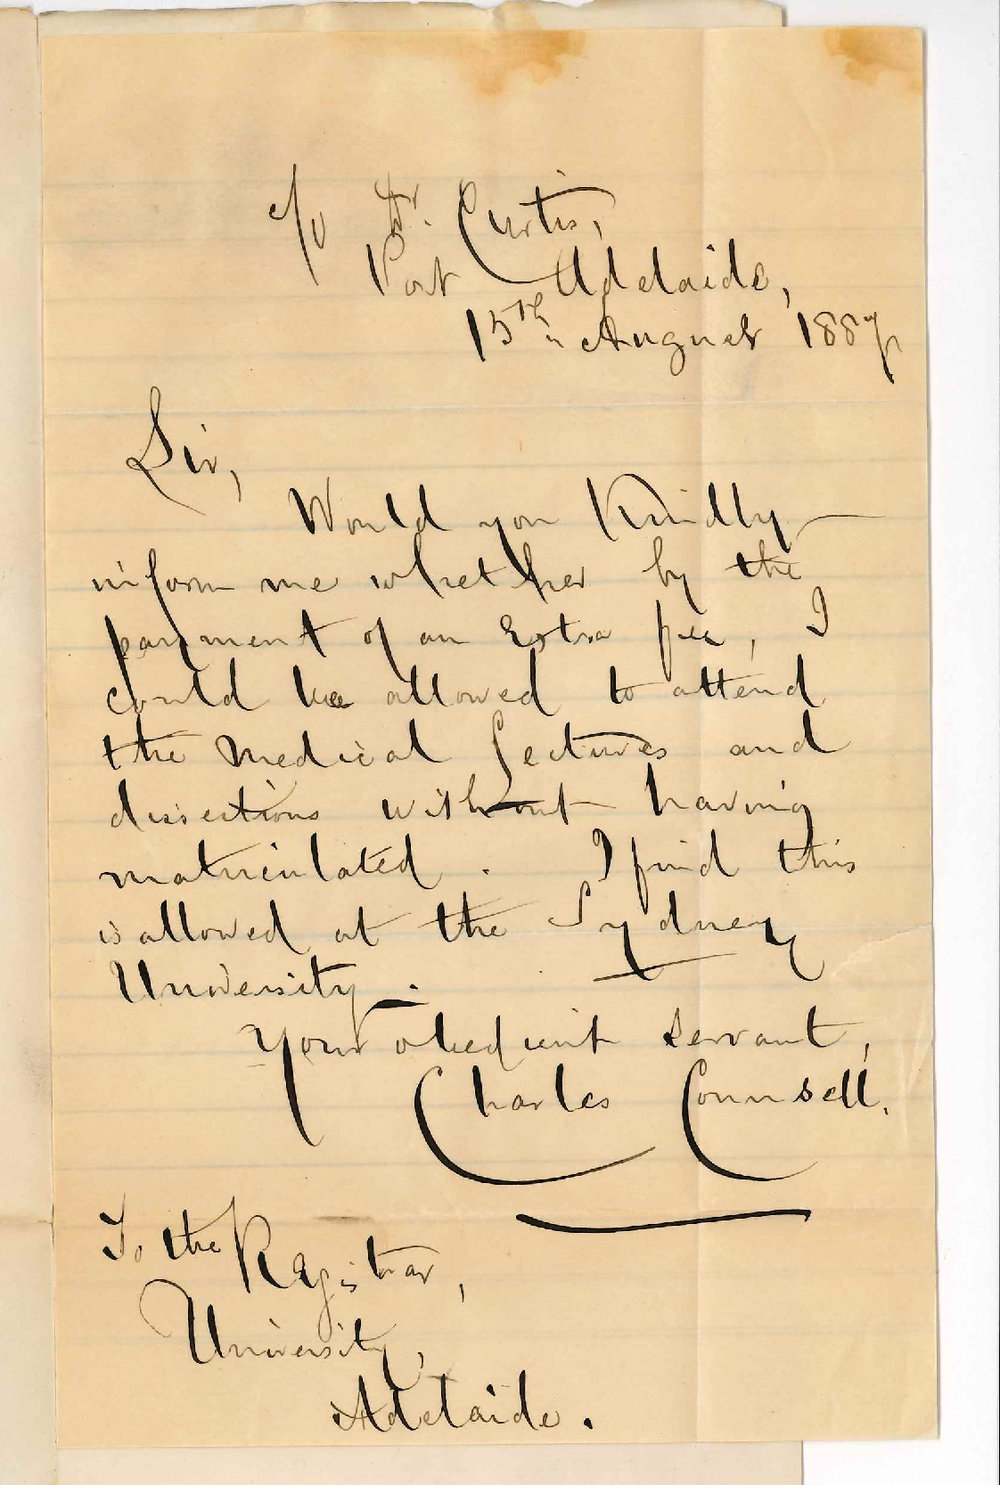 c/o Dr. Curtis,
Port Adelaide,
15th August 1887
Sir,
Would you Kindly
inform me whether by the
payment of an Extra fee, I
could be allowed to attend
the Medical Lectures and
dissections without having
matriculated. I find this
is allowed at the Sydney
University.
Your obedient servant,
Charles Counsell.
To the Registrar,
University,
Adelaide.